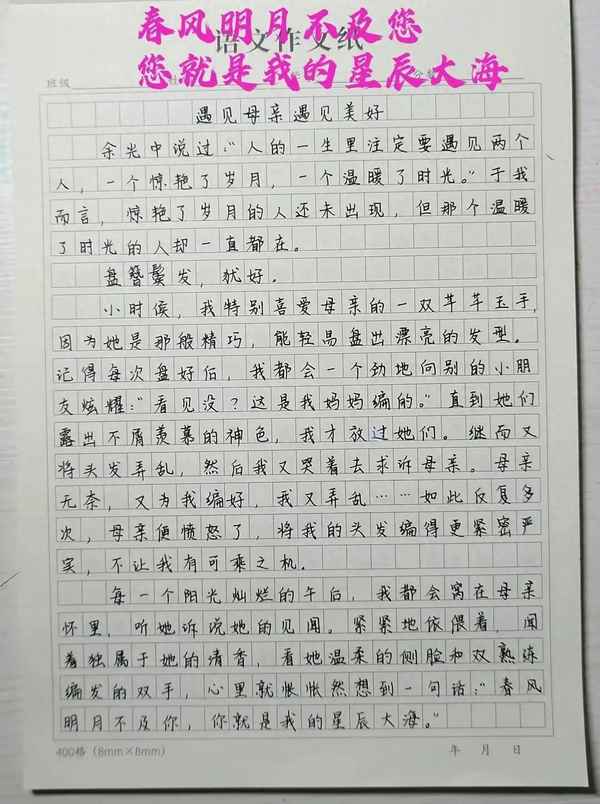 春风明月不及您
语文作文纸
您就是我的星辰大海
班级
遇见母亲遇见美好
余光中说过:“人的一生里注定要遇见两个
人,一个惊艳了岁月,一个温暖了时光。”于我
而言,惊艳了岁月的人还未出现,但那个温暖
了时光的人却一直都在。
盘簪鬓发,犹好.
小时候,我特别喜爱母亲的一双芊芊玉手,
因为她是那般精巧,能轻易盘出漂亮的发型。
记得每次盘好后,我都会一个劲地向别的小朋
友炫耀:“看见没?这是我妈妈编的。”直到她们
露出不屑羡慕的神色,我才放过她们。继而又
将头发弄乱,然后我又哭着去求诉母亲。母亲
无奈,又为我编好,我又弄乱……如此反复多
次,母亲便愤怒了,将我的头发编得更紧密严
实,不让我有可乘之机.
每一个阳光灿烂的午后,我都会窝在母亲
怀里,听她诉说她的见闻。紧紧地依偎着,闻
着独属于她的清香,看她温柔的侧脸和双熟练
编发的双手,心里就怅怅然想到一句话:“春风
明月不及你,你就是我的星辰大海。”
400格(8mm×8mm) 年 月 日